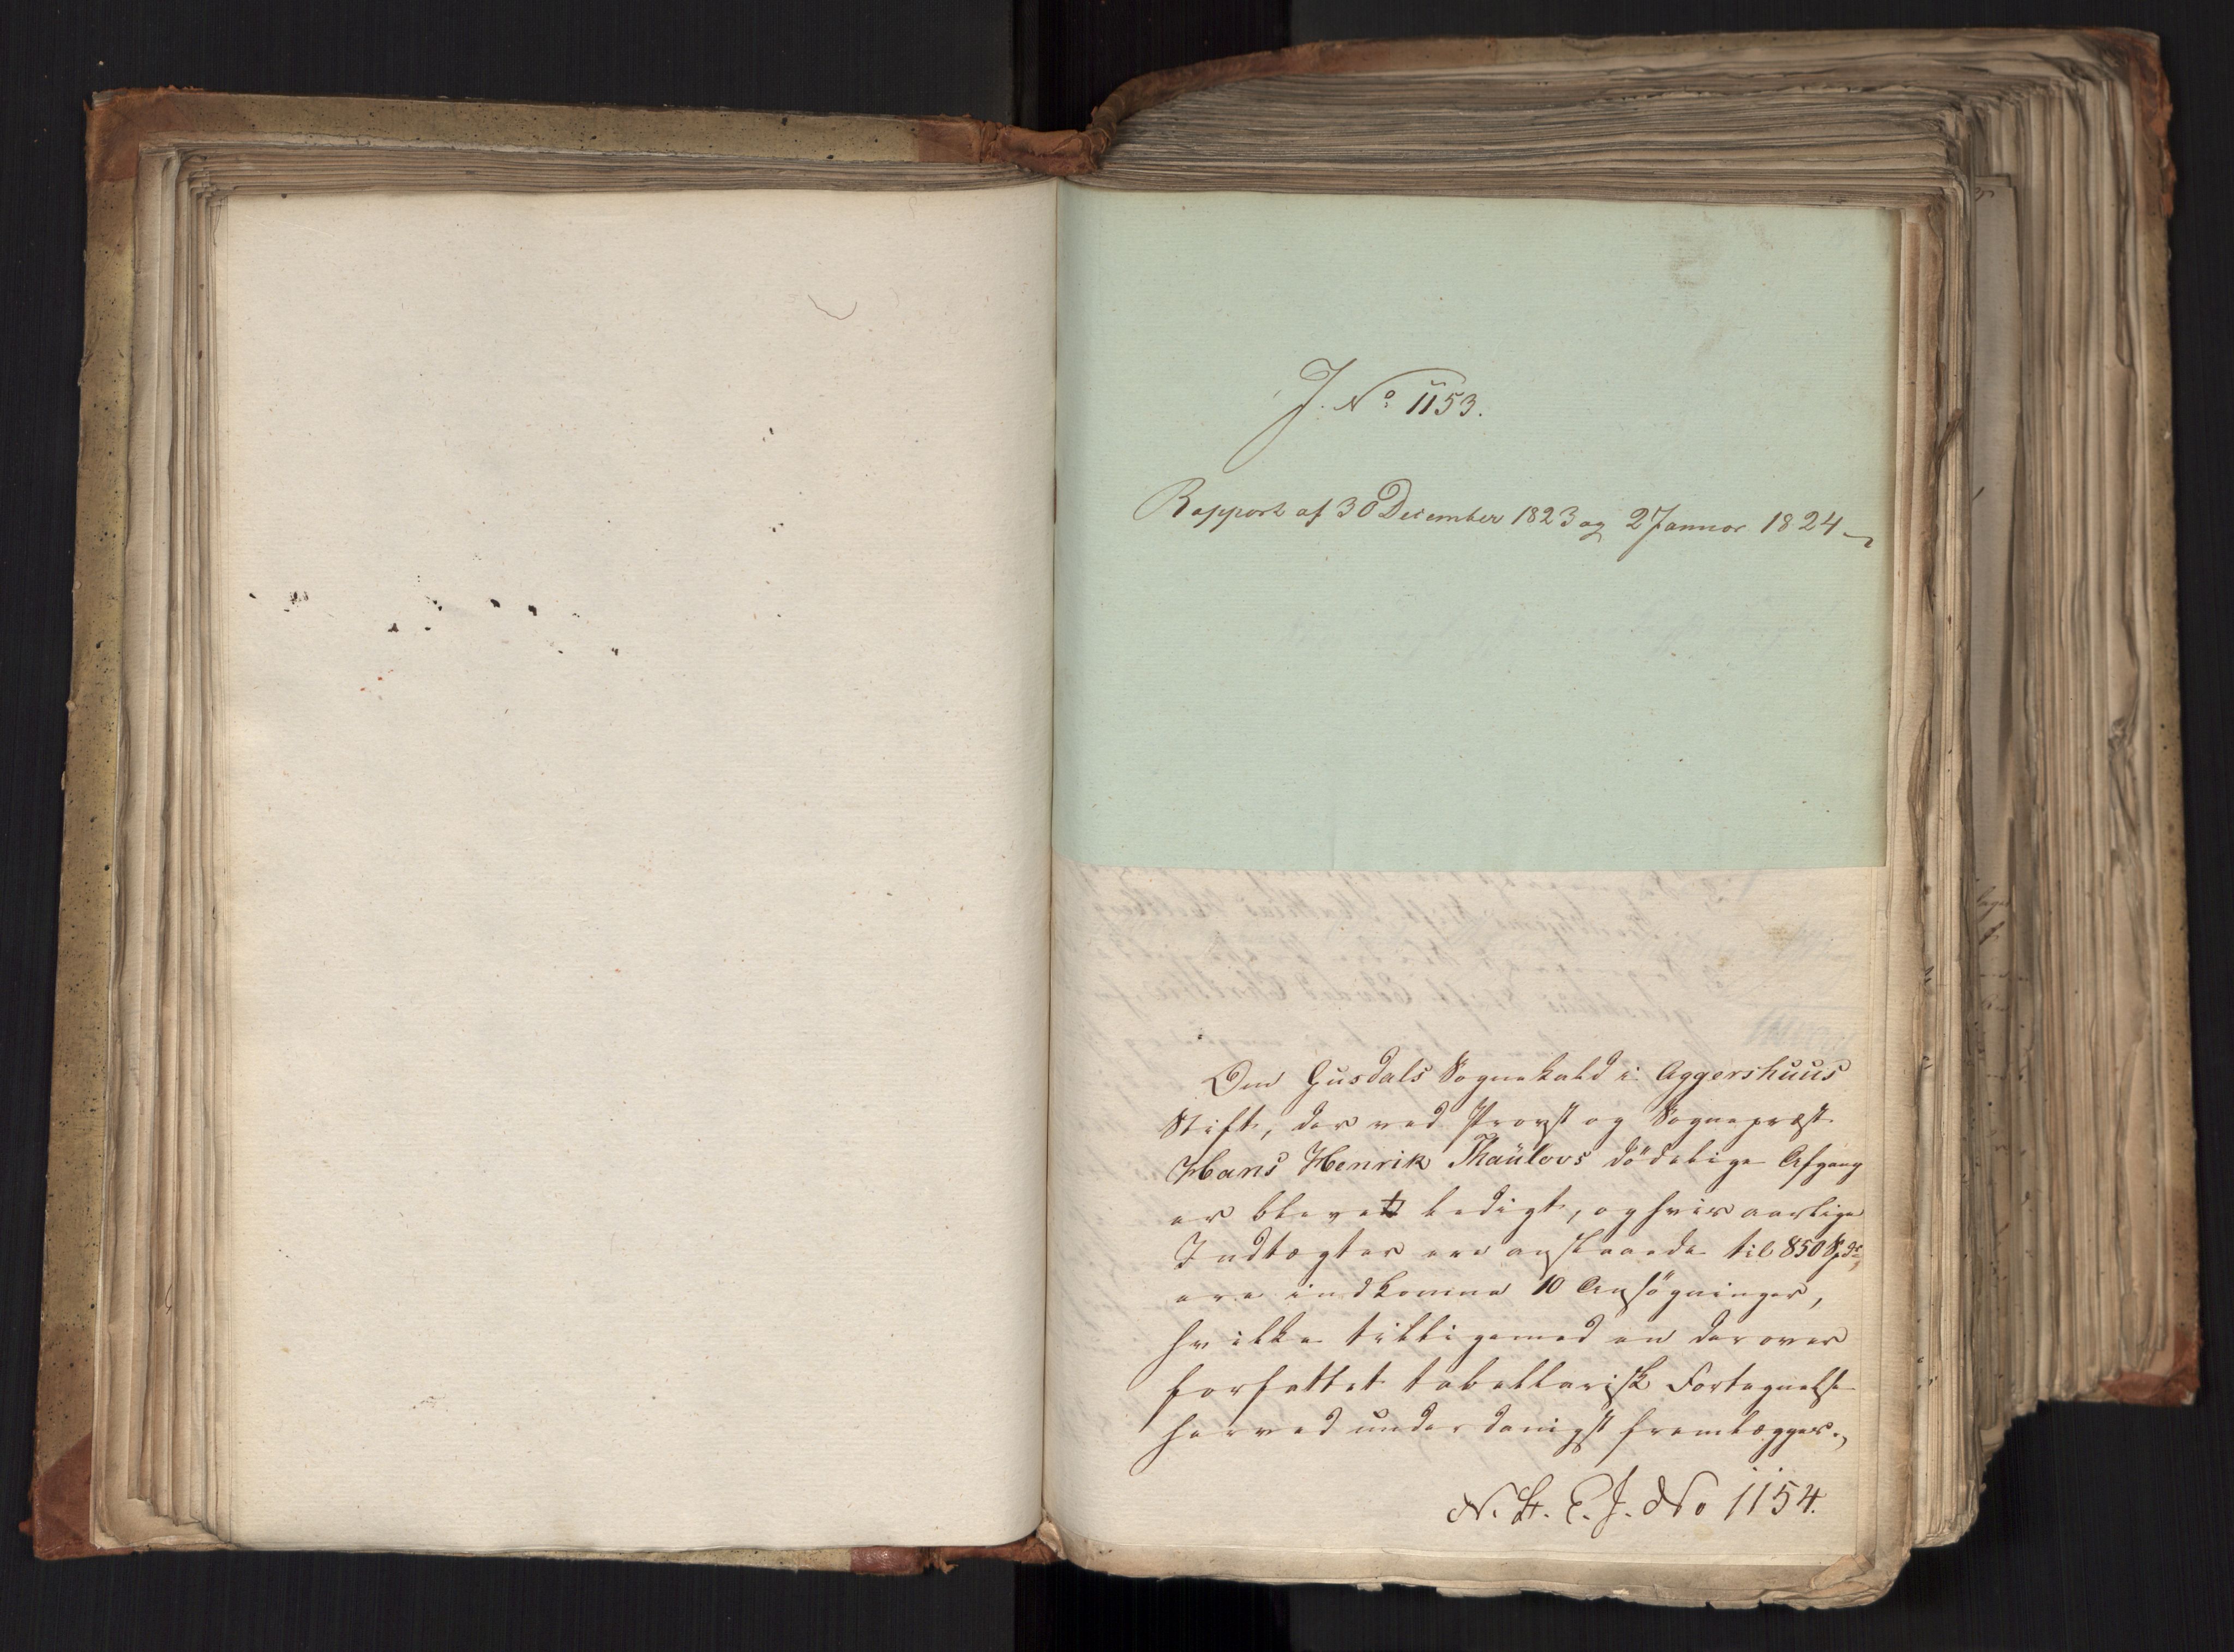 J. No 1153.
Rapport af 30 December 1823 og 2 Januar 1824
Om Gusdals Sognekald i Aggershuus
Stift, der ved Provst og Sognepræst
Hans Henrik Thaülovs dödelige Afgang
er blevett ledigt, og hvis aarlige
Indtægter ere anslaaede til 850 Spdr,
ere indkomne 10 Ansögninger,
hvilke tilligemed en derover
forfattet tabellarisk Fortegnelse
herved underdanigst fremlægges.
N. St. E. J. No 1154.